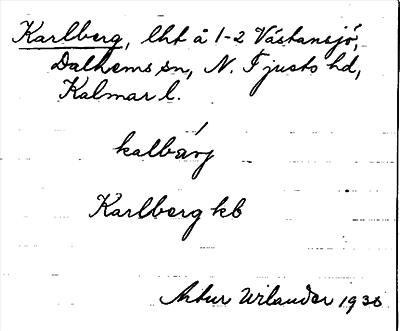 Karlberg, lht å 1-2 Västansjö,
Dalhems sn, N. Tjusts hd,
Kalmar l.
kalbárj
Karlberg kb
Artur Wilander 1930